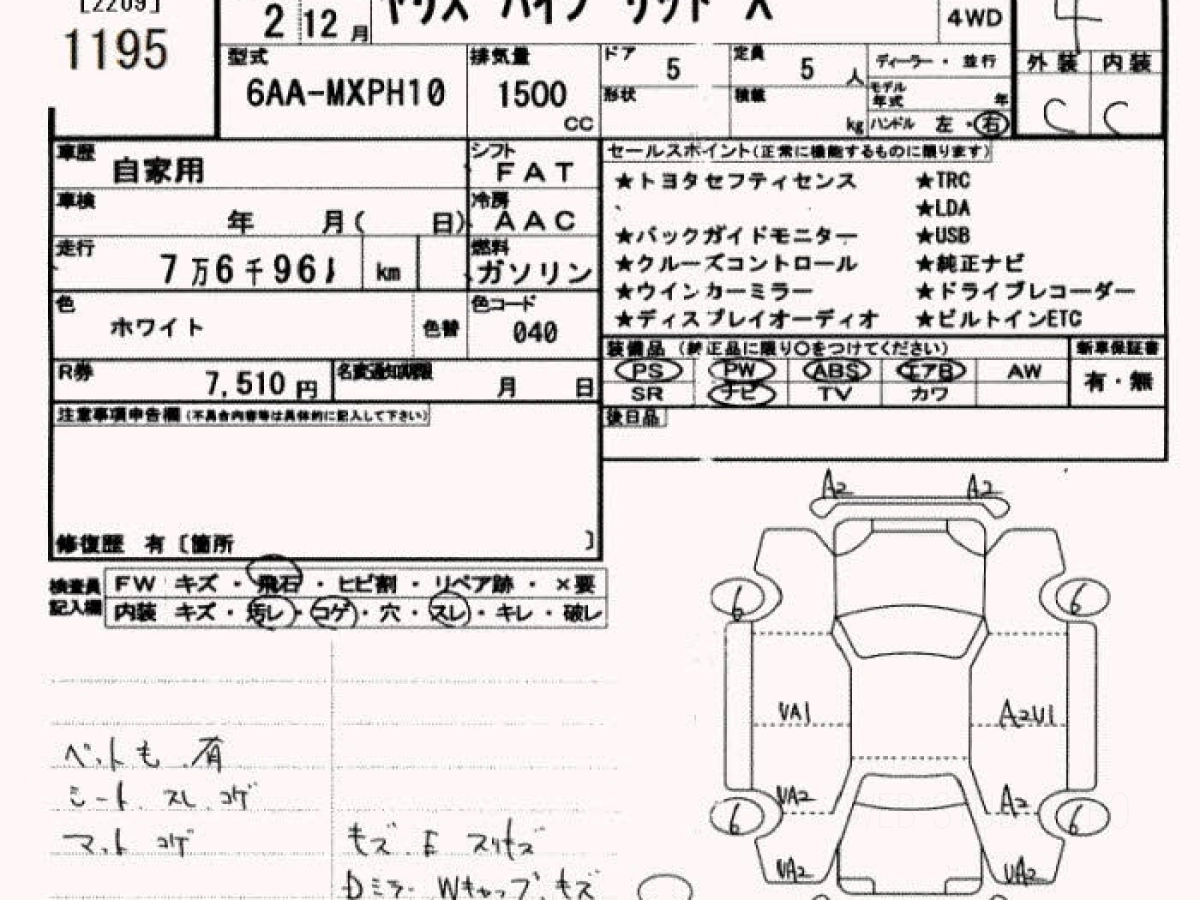 [2209]
1195
2 12 月
ヤリス ハイブリッド X
4WD
4
型式
6AA-MXPH10
排気量
1500
CC
ドア
5
定員
5 人
形状
積載
kg
ディーラー・並行
モデル年式 年
ハンドル 左・右
外装 内装
C C
車歴
自家用
シフト
FAT
車検
年 月( 日)
冷房
AAC
走行
7万6千961 km
燃料
ガソリン
色
ホワイト
色替
色コード
040
R券
7,510円
名変通知期限
月 日
セールスポイント(正常に機能するものに限ります)
★トヨタセフティセンス ★TRC
★LDA
★バックガイドモニター ★USB
★クルーズコントロール ★純正ナビ
★ウインカーミラー ★ドライブレコーダー
★ディスプレイオーディオ ★ビルトインETC
装備品 (純正品に限り○をつけてください)
新車保証書
PS PW ABS エアB AW
有・無
SR ナビ TV カワ
注意事項申告欄(不具合内容等は具体的に記入して下さい)
後日品
修復歴 有〔箇所 〕
検査員記入欄
FW キズ・飛石・ヒビ割・リペア跡・×要
内装 キズ・汚レ・コゲ・穴・スレ・キレ・破レ
A2 A2
6 6
VA1 A2U1
VA2 A2
6 6
VA2 UA2
ペットも 有
シート スレ コゲ
マット コゲ
キズ E スリキズ
Dミラー Wキャップ キズ